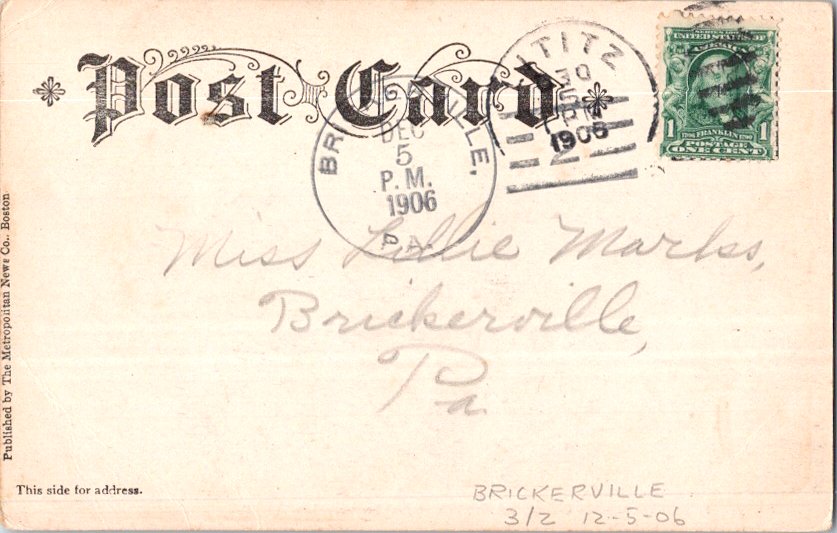 Post Card
BRICKERVILLE,
DEC
5
P. M.
1906
PA.
LITITZ
30
5 PM
1906
SERIES 1902
UNITED STATES OF
AMERICA
1 FRANKLIN 1
POSTAGE
ONE CENT
Miss Lillie Marks,
Brickerville,
Pa
Published by The Metropolitan News Co., Boston
This side for address.
BRICKERVILLE
3/2 12-5-06